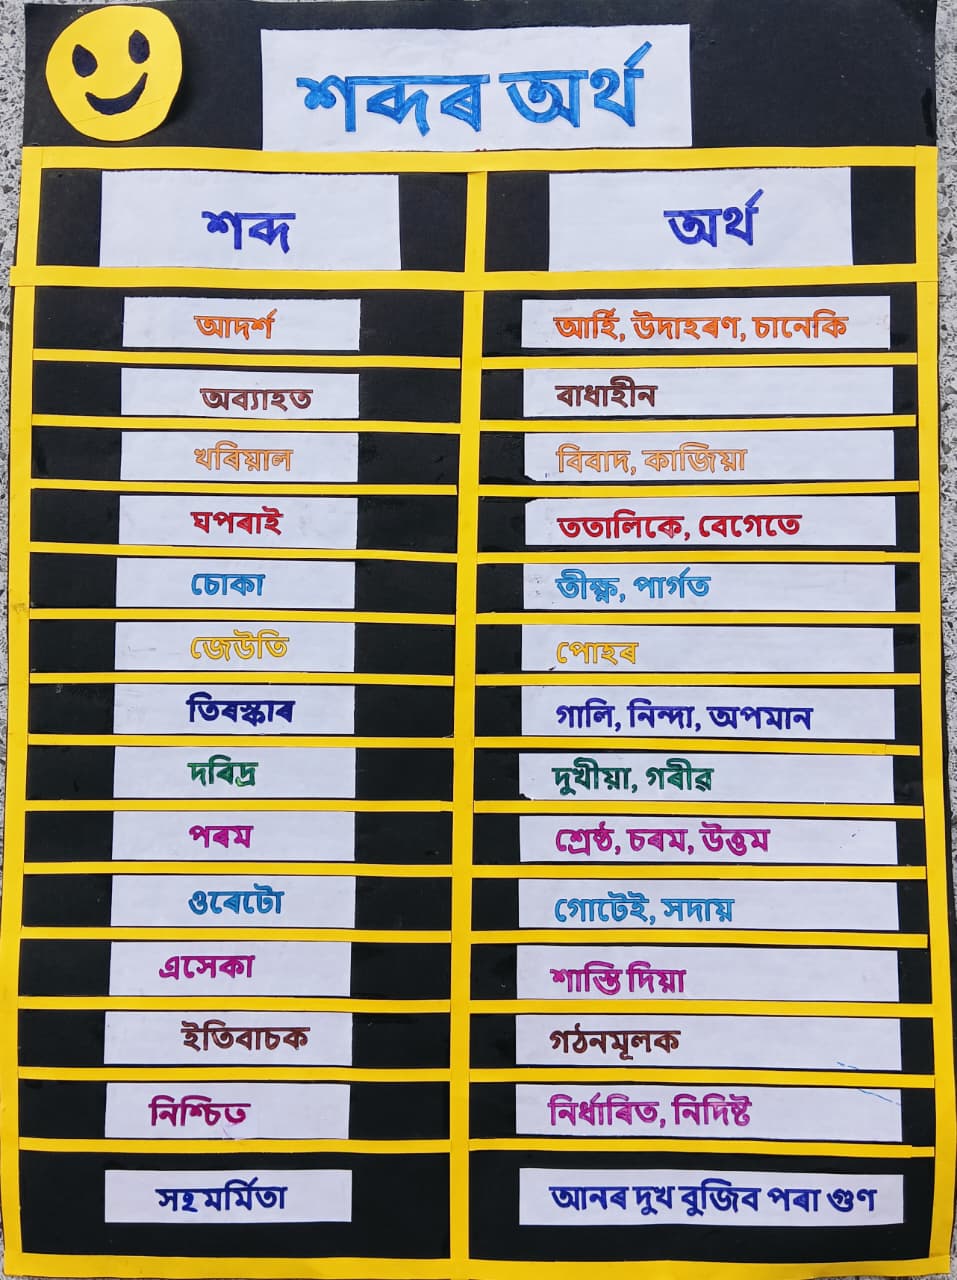 শব্দৰ অৰ্থ
শব্দ অৰ্থ
আদৰ্শ আৰ্হি, উদাহৰণ, চানেকি
অব্যাহত বাধাহীন
খৰিয়াল বিবাদ, কাজিয়া
ঘপৰাই ততালিকে, বেগেতে
চোকা তীক্ষ্ণ, পাৰ্গত
জেউতি পোহৰ
তিৰস্কাৰ গালি, নিন্দা, অপমান
দৰিদ্ৰ দুখীয়া, গৰীৱ
পৰম শ্ৰেষ্ঠ, চৰম, উত্তম
ওৰেটো গোটেই, সদায়
এসেকা শাস্তি দিয়া
ইতিবাচক গঠনমূলক
নিশ্চিত নিৰ্ধাৰিত, নিদিষ্ট
সহমৰ্মিতা আনৰ দুখ বুজিব পৰা গুণ